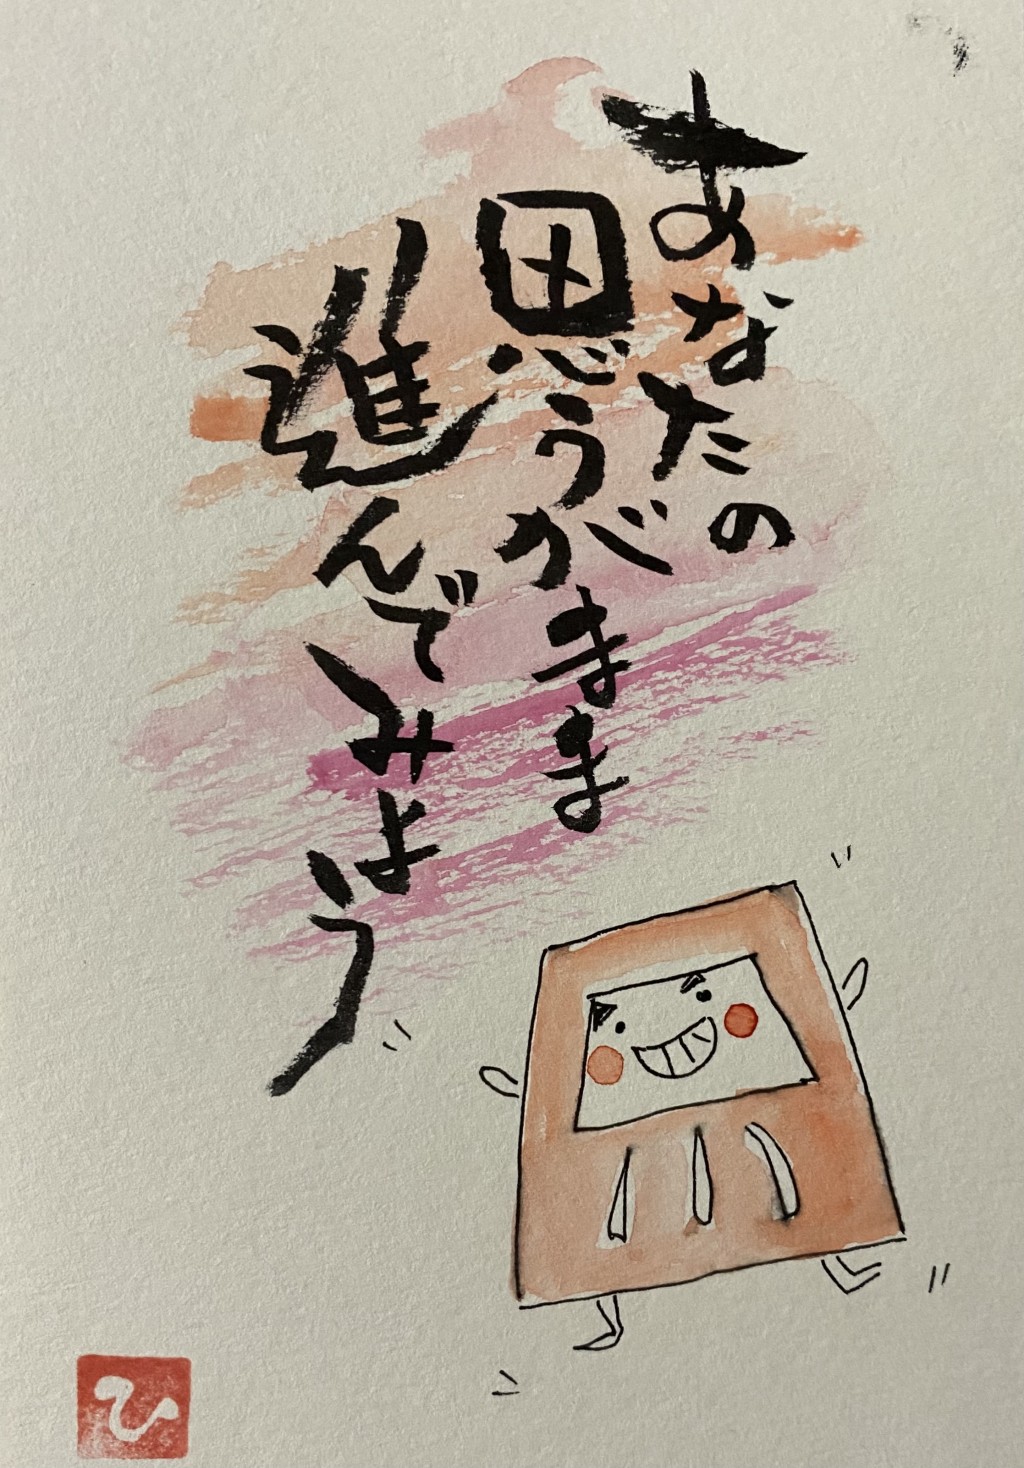 あなたの
思うがまま
進んでみよう
ひ